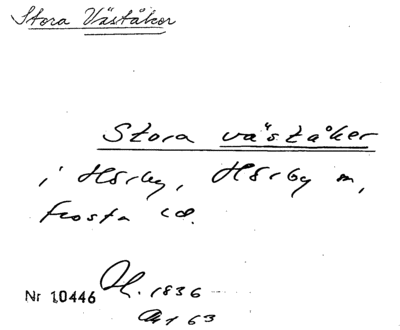 Stora Väståker
Stora väståker
i Hörby, Hörby sn,
Frosta hd.
Nr 10446 Ok. 1836
163